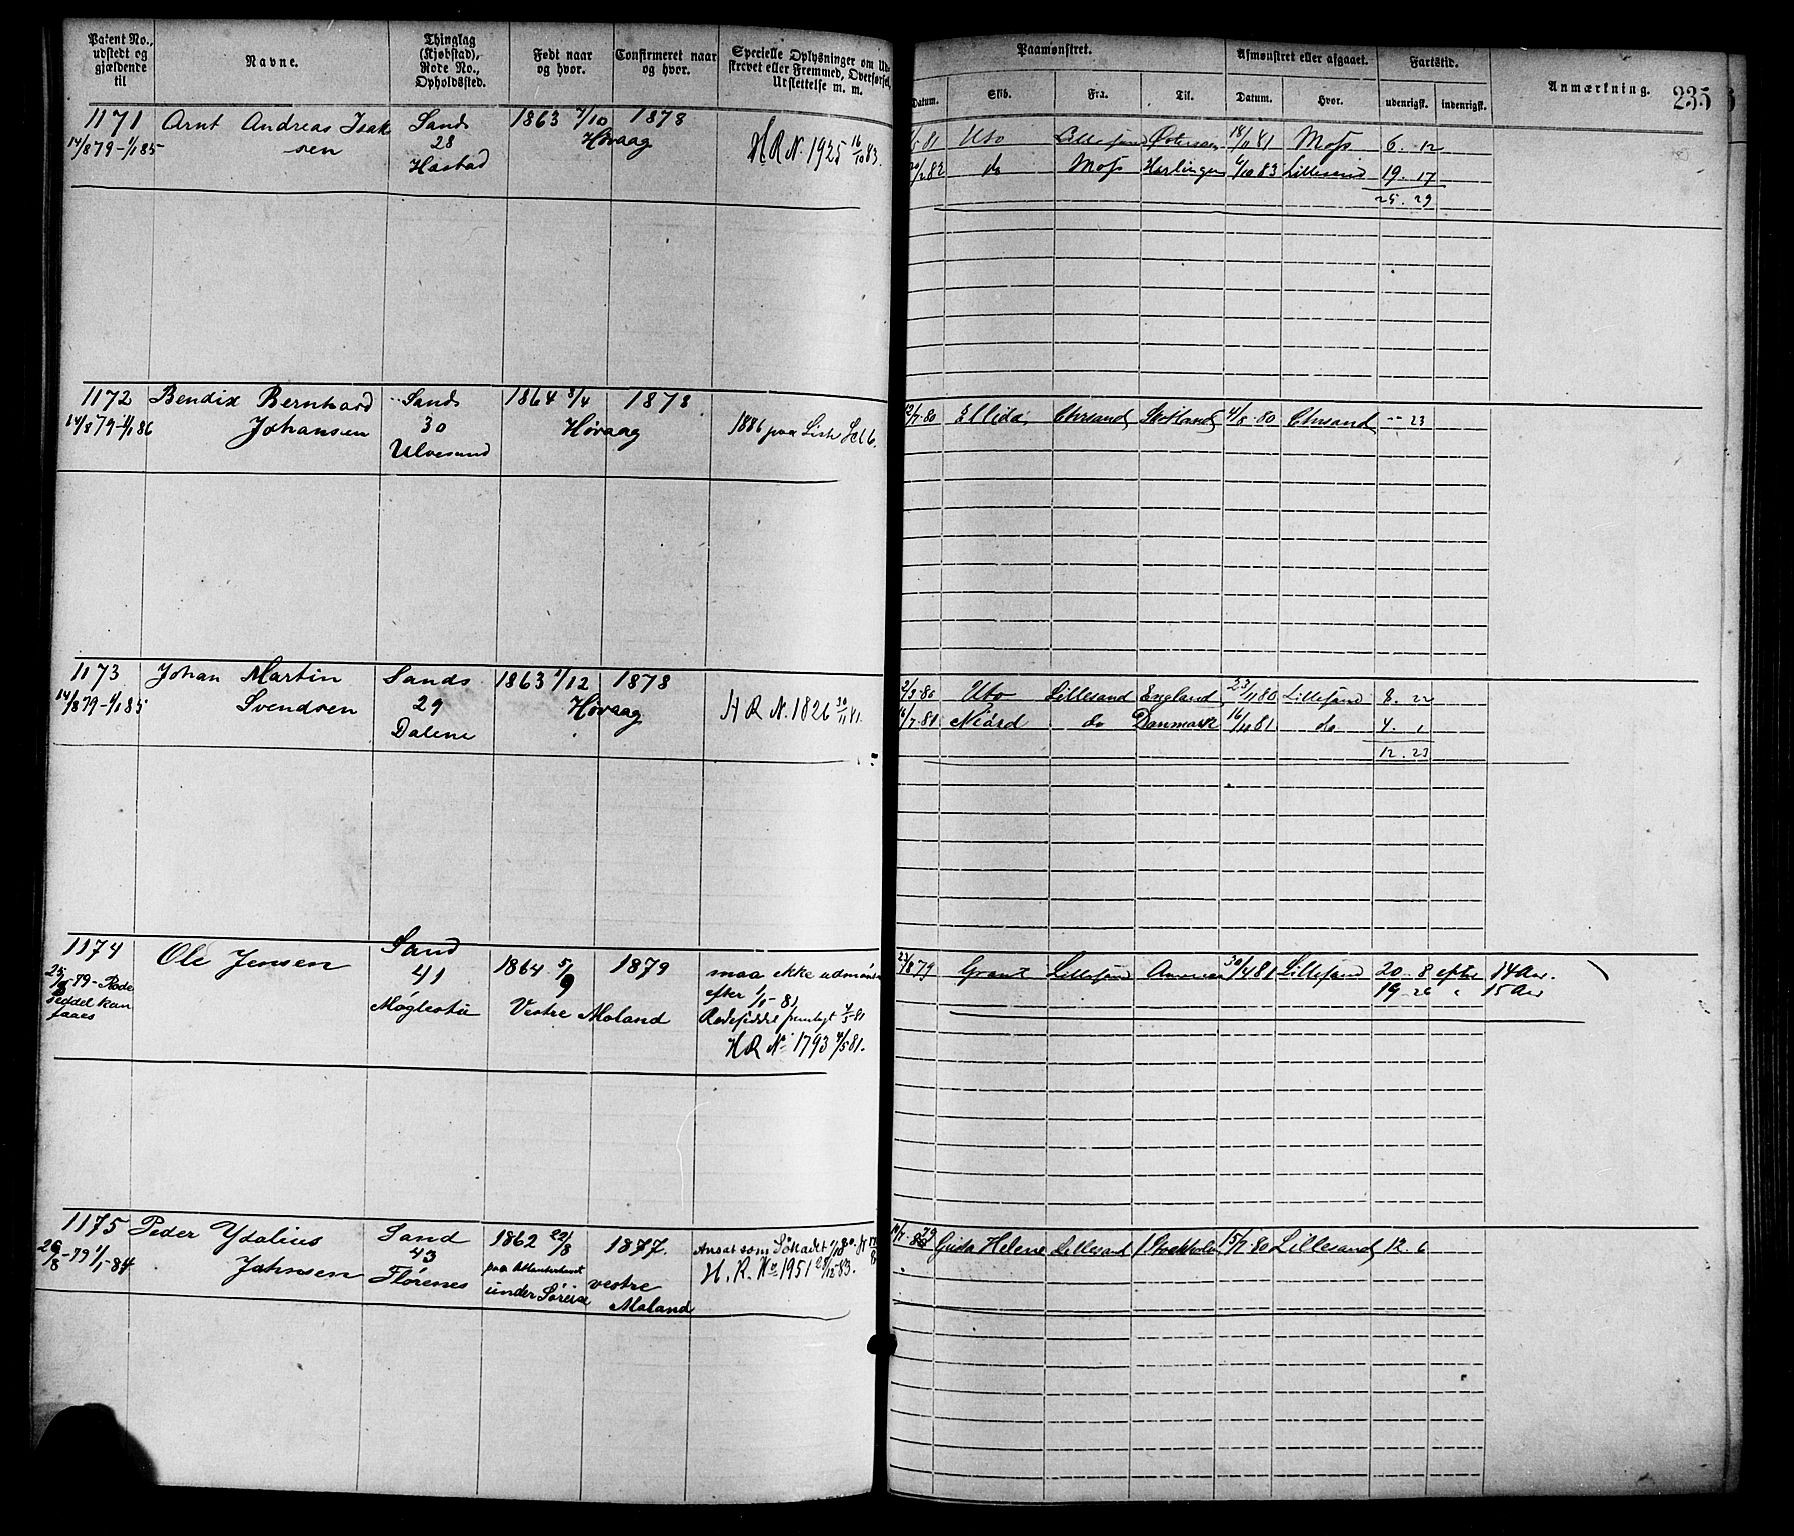 Patent No., udstedt og gjældende til
Navne.
Thinglag (Kjøbstad), Rode No., Opholdssted.
Født naar og hvor.
Confirmeret naar og hvor.
Specielle Oplysninger om Ud-
skrevet eller Fremmed, Overførsel,
Udslettelse m. m.
Paamønstret.
Afmønstret eller afgaaet.
Fartstid.
Anmærkning.
235
Datum.
Skib.
Fra.
Til.
Datum.
Hvor.
udenrigsk.
indenrigsk.
1171 Arnt Andreas Isak Sands 1863 7/10 1878
14/8 79-1/1 85 sen 28 Høvaag H R N. 1925 16/10 83.
Hastad
5 81 Uto Lillesand Østersøen 18/11 81 Moss 6. 12
82 do Moss Harlingen 6/10 83 Lillesand 19. 17
25. 29
1172 Bendix Bernhard Sands 1864 3/4 1878
14/8 79-1/1 86 Johansen 30 Høvaag 1886 paa Liste
Ulvesund
12/7. 80 Ellida Chrsand Skotland 4/8. 80 Chrsand -- 23
1173 Johan Martin Sands 1863 1/12 1878
14/8 79-1/1 85 Svendsen 29 Høvaag H R N. 1826 30/11 81.
Dalene
2/3. 80 Uto Lillesand England 23/11 80 Lillesand 8. 22
6/7. 81 Niord do Danmark 16/11 81 do 4. 1
12. 23
1174 Ole Jensen Sand 1864 5/9 1879
41
Møglestu Vestre Moland
79- Rode
seddel kan
faaes
maa ikke udmønst
efter 1/5- 81
Rodeseddel fremlagt 4/5 81
H R No 1793 4/5 81.
23/8 79 Grant Lillesand 30/4 81 Lillesand 20. 8 efter 14 Aar.
19. 26 " 15 Aar
1175 Peder Ydalius Sand 1862 22/8 1877.
26/8-79 1/1-84 Johnsen 43
Florenes
under vestre
Moland
Ansat som Søkadet 1/10 80.
H. R. No 1951 83.
Gusta Helene Lillesand Stockholm 15/7. 80 Lillesand 12. 6